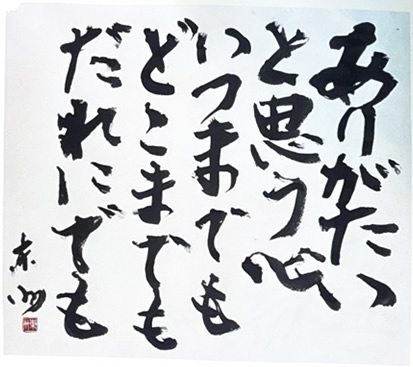 ありがたい
と思う心
いつまでも
どこまでも
だれにでも